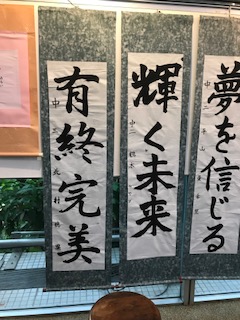 夢を信じる
輝く未来
有終完美